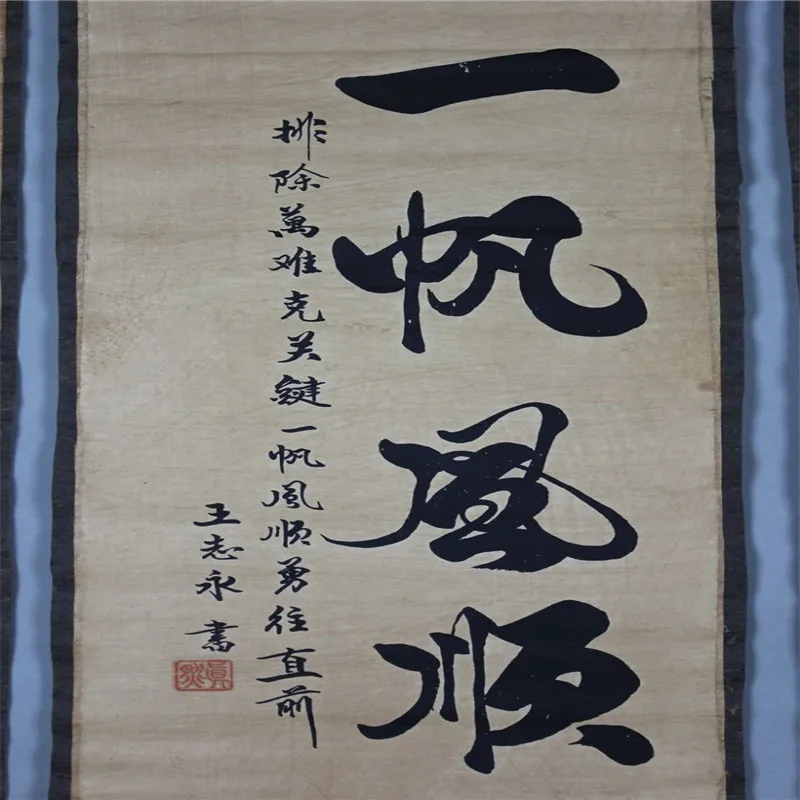 一帆風順
排除萬难克关鍵一帆風順勇往直前
王志永書